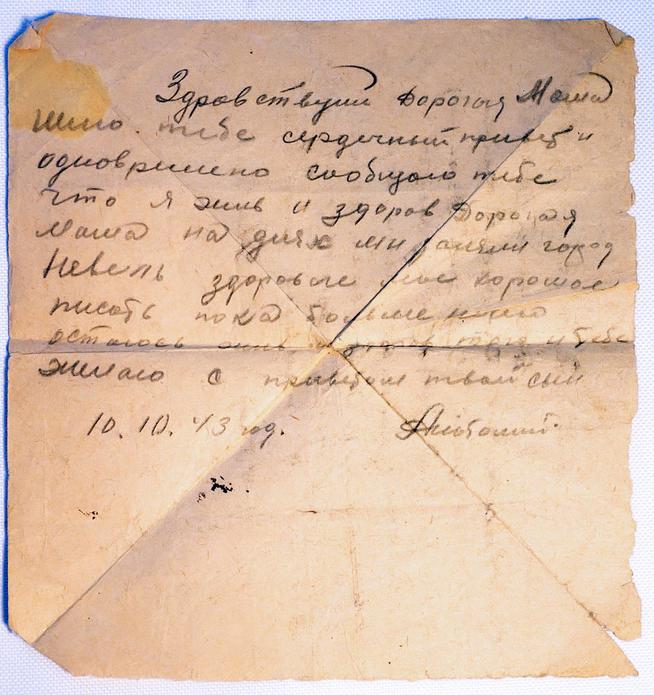 Здравствуй дорогая Мама
шлю тебе сердечный привет и
одновремено сообщаю тебе
что я жив и здоров Дорогая
Мама на днях мы заняли город
Невель здоровье мое хорошое
писать пока больше нечего
остаюсь жив и здоров того и тебе
желаю с приветом твой сын
10. 10. 43 год. Анатолий.